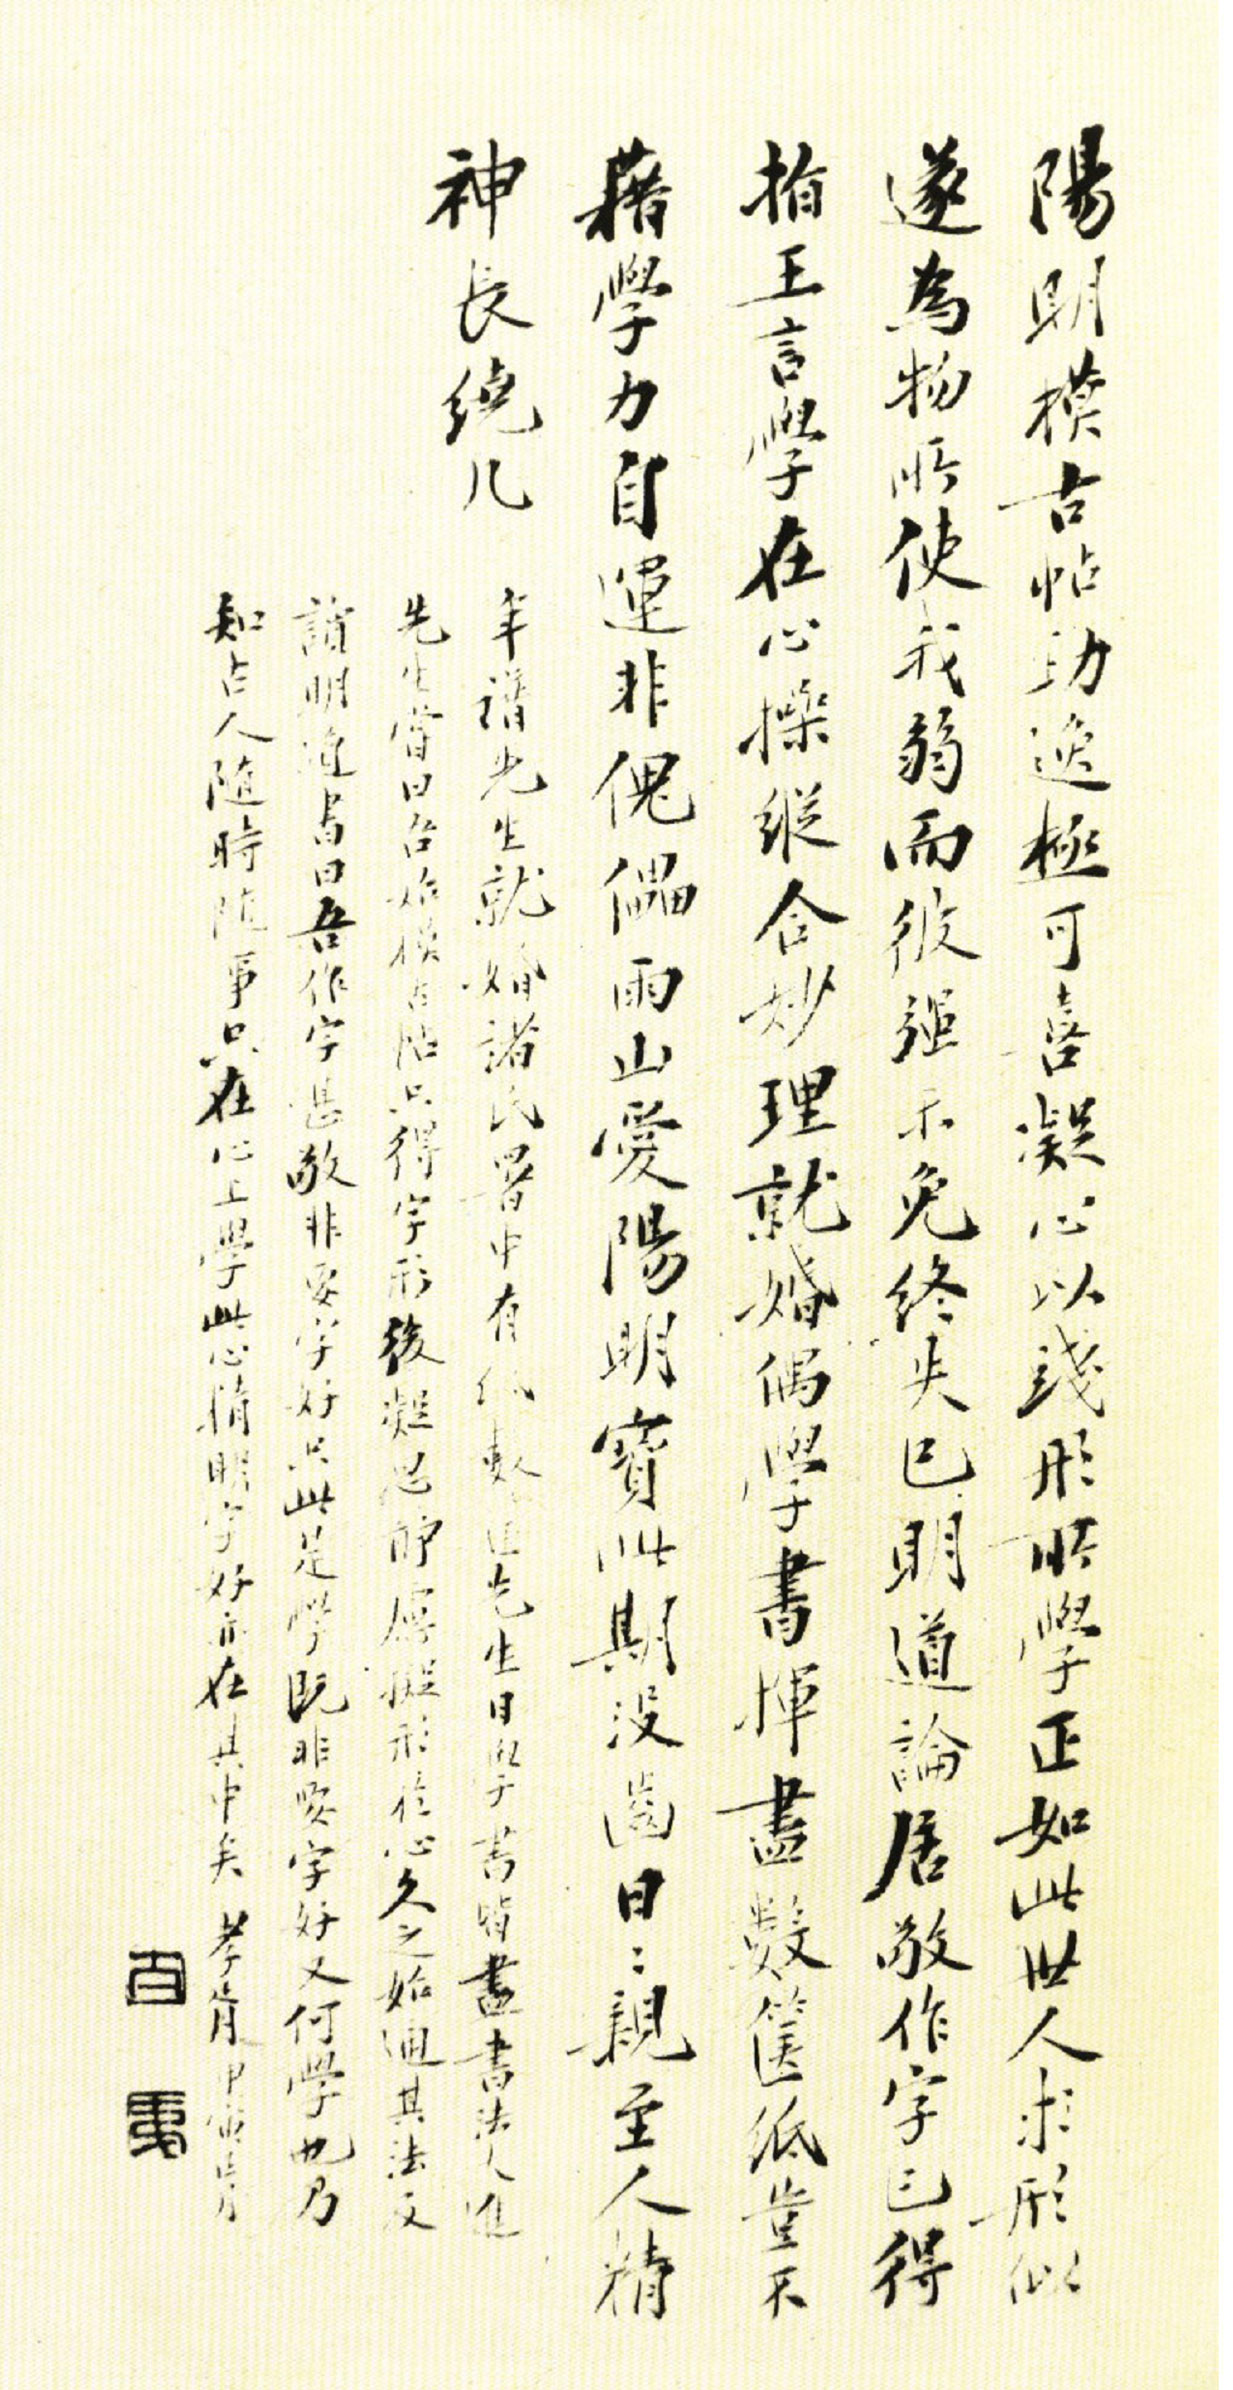 陽明模古帖功邃極可喜凝心以踐形所學正如此世人求形似
遂為物所使我弱而彼強不免終失已明道論居敬作字已得
指王言學在心操縱合妙理就婚偶學書揮盡數篋紙豈不
藉學力自運非傀儡雨山愛陽明寶此期没齒日〻親至人精
神長繞几
年譜先生就婚諸氏署中有紙數篋先生日學書皆盡書法大進
先生嘗曰吾始模古帖只得字形後凝思靜慮擬形於心久之始通其法及
讀明道書曰吾作字甚敬非要字好只此是學既非要字好又何學也乃
知古人隨時隨事只在心上學此心精明字好亦在其中矣 孝胥甲寅
百
夷